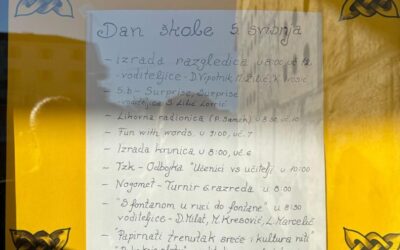 Dan škole 5. svibnja
- izrada razglednica u 8:00 uč. 12
- voditeljice - D. Vipotnik, M. Žilić, K. Vosić
- 5.b - Surprise, Surprise
voditeljica S. Lilić Lovrić
- Likovna radionica (P. Samsa) u 8:50 uč. 10
- Fun with words, u 9:00, uč. 7
- Izrada krunica u 8:00, uč. 6
- TZK - Odbojka "Učenici vs učitelji u 10:00
- Nogomet - Turnir 6. razreda u 8:00
- "S fontanom u ruci do fontane" u 8:30
voditeljice - D. Milat, M. Kresović, L. Marcelić
- "Papirnati trenutak sreće i kultura niti"